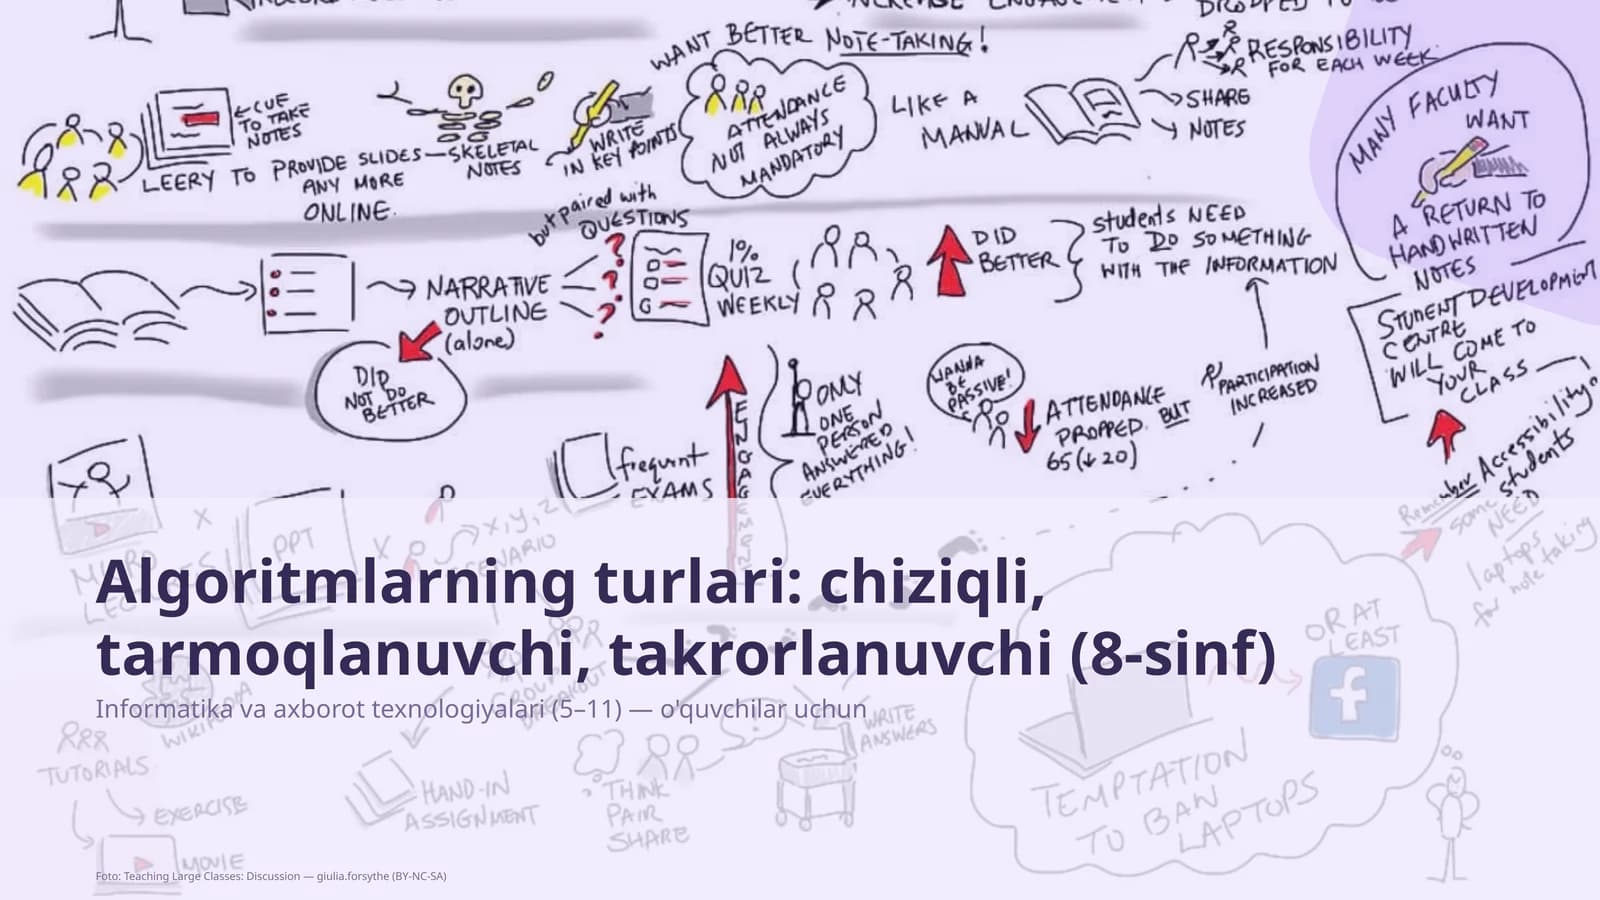 WANT BETTER NOTE-TAKING!
RESPONSIBILITY
FOR EACH WEEK
←CUE
TO TAKE
NOTES
LEERY TO PROVIDE SLIDES—SKELETAL
NOTES
ANY MORE
ONLINE.
WRITE
IN KEY POINTS
ATTENDANCE
NOT ALWAYS
MANDATORY
LIKE A
MANUAL
SHARE
NOTES
MANY FACULTY
WANT
A RETURN TO
HANDWRITTEN
NOTES
but paired with
QUESTIONS
NARRATIVE
OUTLINE
(alone)
1%
QUIZ
WEEKLY
DID
BETTER
students NEED
TO DO SOMETHING
WITH THE INFORMATION
STUDENT DEVELOPMENT
CENTRE
WILL COME TO
YOUR
CLASS
DID
NOT DO
BETTER
ENGAGEMENT
ONLY
ONE
PERSON
ANSWERED
EVERYTHING!
WANNA
BE
PASSIVE!
ATTENDANCE
DROPPED. BUT
65 (↓ 20)
PARTICIPATION
INCREASED
frequent
EXAMS
Remember Accessibility
some students
NEED
laptops
for note taking
PPT
x, y, z
SCENARIO
Algoritmlarning turlari: chiziqli,
tarmoqlanuvchi, takrorlanuvchi (8-sinf)
Informatika va axborot texnologiyalari (5–11) — o'quvchilar uchun
OR AT
LEAST
f
WIKIPEDIA
TUTORIALS
EXERCISE
MOVIE
HAND-IN
ASSIGNMENT
THINK
PAIR
SHARE
WRITE
ANSWERS
TEMPTATION
TO BAN
LAPTOPS
Foto: Teaching Large Classes: Discussion — giulia.forsythe (BY-NC-SA)